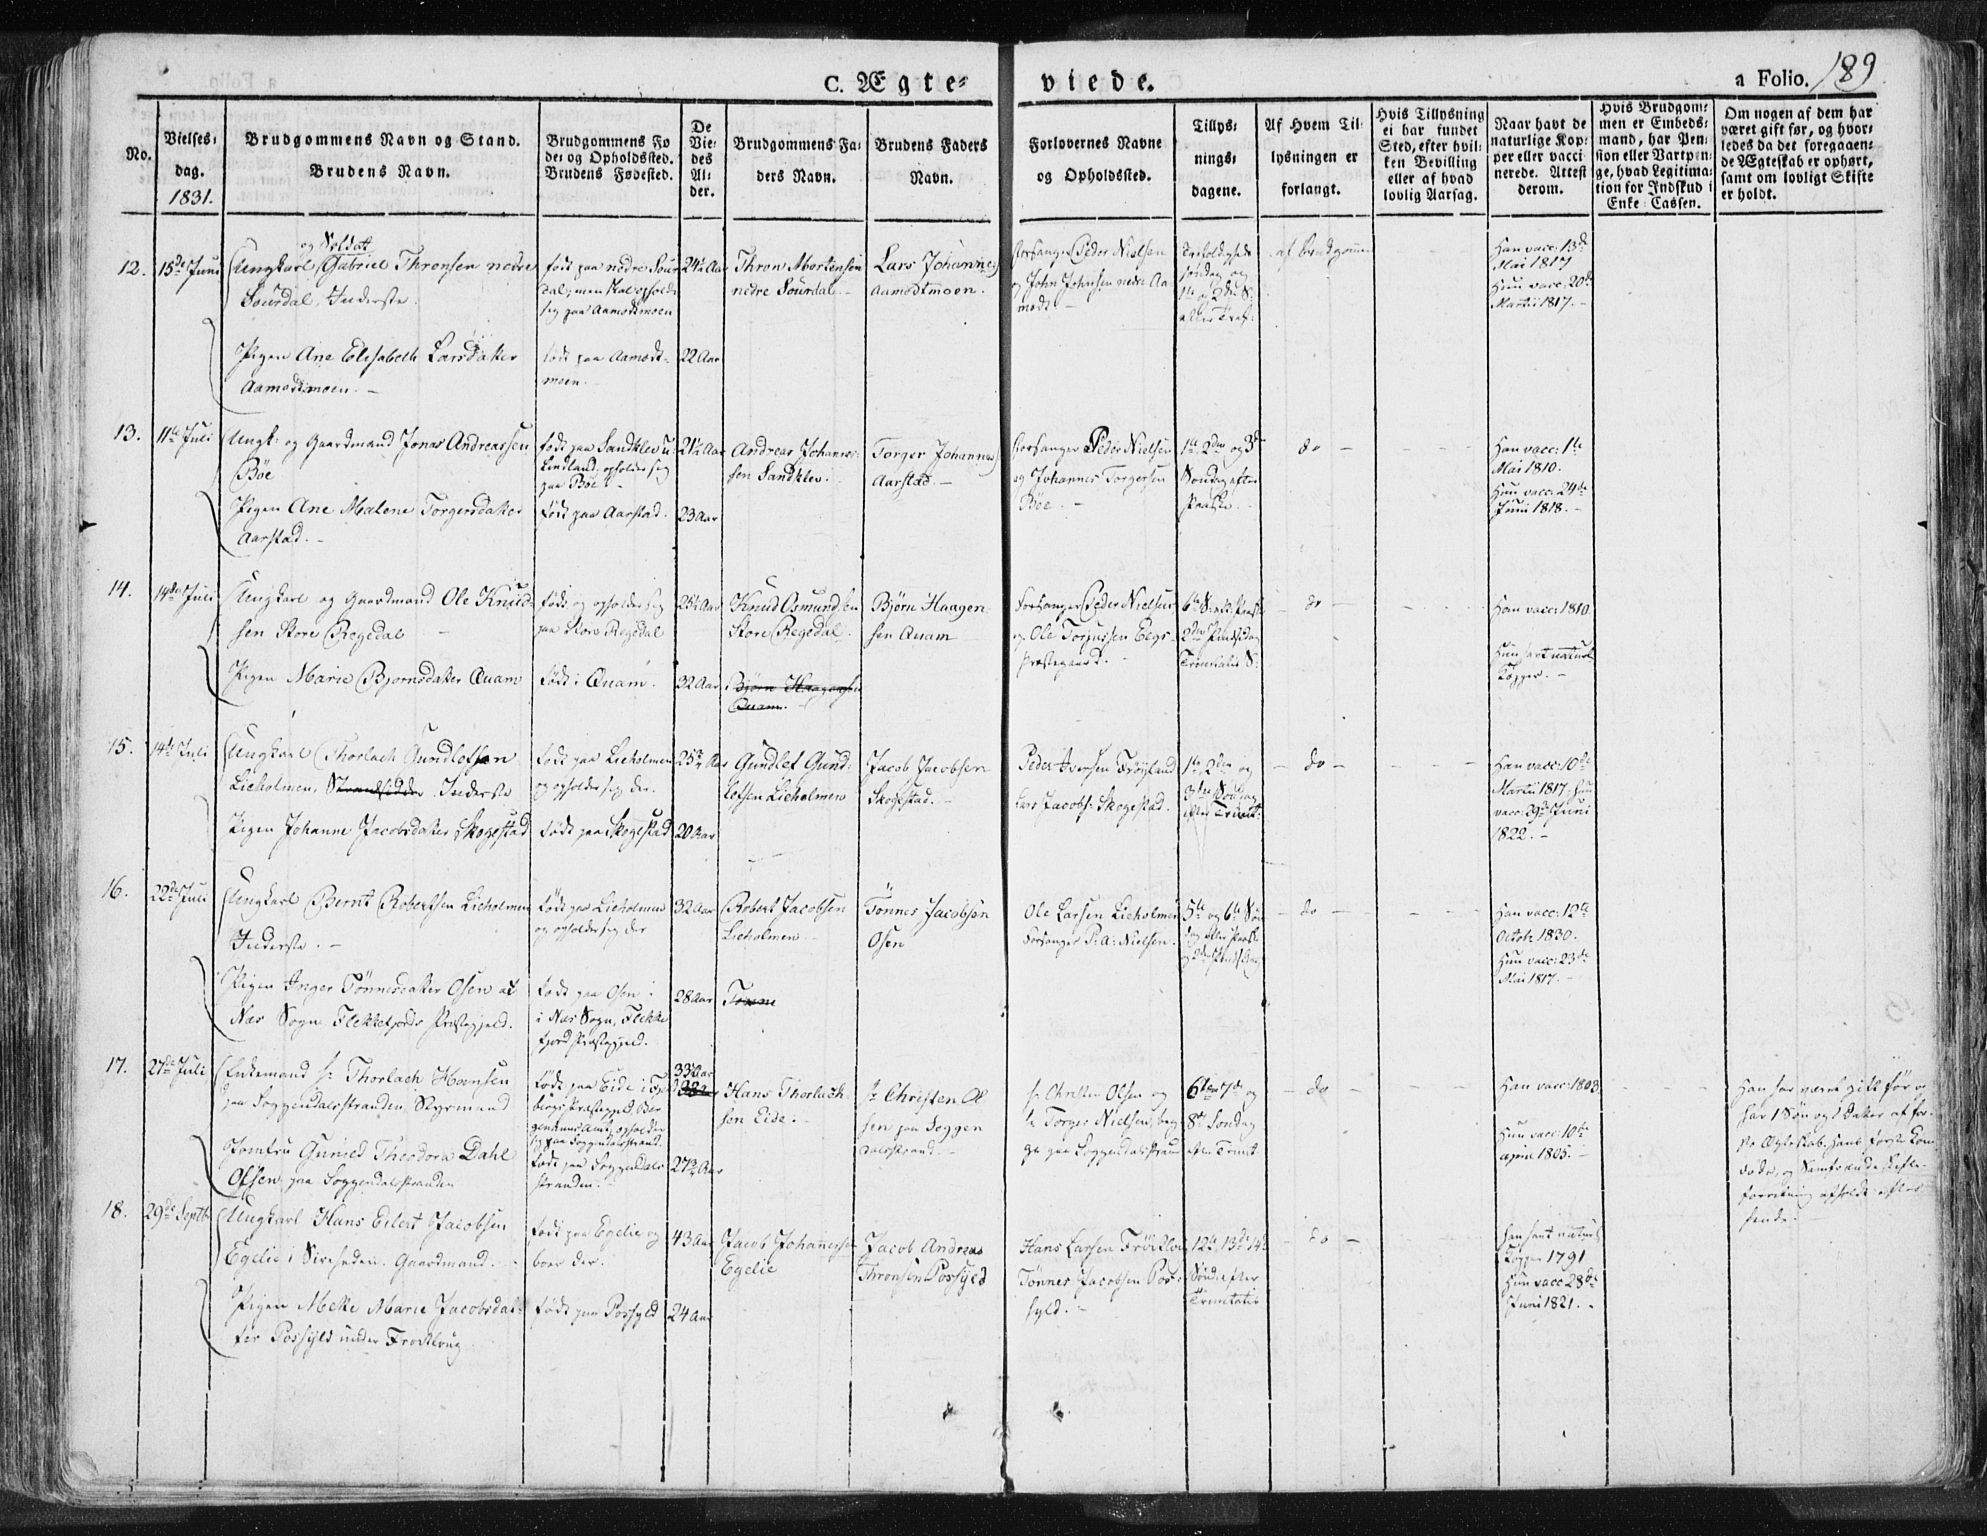 C. Ægte-
viede.
a Folio. 189
No.
Vielses-
dag.
1831.
Brudgommens Navn og Stand.
Brudens Navn.
Brudgommens Fø
de- og Opholdssted.
Brudens Fødested.
De
Vie-
des
Al-
der.
Brudgommens Fa-
ders Navn.
Brudens Faders
Navn.
Forlovernes Navne
og Opholdssted.
Tillys-
nings-
dagene.
Af Hvem Til-
lysningen er
forlangt.
Hvis Tillysning
ei har fundet
Sted, efter hvil-
ken Bevilling
eller af hvad
lovlig Aarsag.
Naar havt de
naturlige Kop-
per eller vacci-
nerede. Attest
derom.
Hvis Brudgom-
men er Embeds-
mand, har Pen-
sion eller Vartpen-
ge, hvad Legitima-
tion for Indskud i
Enke Cassen.
Om nogen af dem har
været gift før, og hvor-
ledes da det foregaaen-
de Ægteskab er ophørt,
samt om lovligt Skifte
er holdt.
12.
15de Juni
og Soldat
Ungkarl Gabriel Thronsen nedre
Sourdal, Inderste.
Pigen Ane Elisabeth Larsdatter
Aamodtmoen. –
født paa nedre Sour
dal; men
sig paa Aamodtmoen
født paa Aamodt-
moen.
24½ Aar
22 Aar
Thron Mortensen
nedre Sourdal
Lars Johannes
Aamodtmoen.
Forsanger Peder Nielsen
og John Johnsen nedre Aa
modt –
af Brudgommen
Han vacc: 13de
Mai 1817
Hun vacc: 20de
Martii 1817. –
13.
11te Juli
Ungk: og Gaardmand Jonas Andreassen
Bøe
Pigen Ane Malene Torgersdatter
Aarstad. –
født paa Sandklev u:
Lindland; opholder sig
paa Bøe. –
født paa Aarstad.
21½ Aar
23 Aar
Andreas Johannes-
sen Sandklev.
Torger Johannes
Aarstad. –
Forsanger Peder Nielsen
og Johannes Torgersen
Bøe. –
1te 2den og 3de
Søndag efter
Paaske. –
do –
Han vacc: 1te
Mai 1810.
Hun vacc: 24de
Juni 1818. –
14.
14de Juli
Ungkarl og Gaardmand Ole Knud-
sen Store Regedal
Pigen Marie Bjørnsdatter Quam
født og opholder sig
paa Store Regedal
født i Quam.
25½ Aar
32 Aar
Knud Osmundsen
Store Regedal.
Bjørn Haagensen
Quam.
Bjørn Haagen
sen Quam
Forsanger Peder Nielsen
og Ole Torjussen Eegs-
Præstegaard. –
– do –
Han vacc: 1810
Hun havt naturl
Kopper. –
15.
14de Juli
Ungkarl Thorlach Gundlefsen
Lieholmen, Strandsidder Inderste
Pigen Johanne Jacobsdatter Skogestad
født paa Lieholmen
og opholder sig der.
født paa Skogestad
20 Aar
Gundlef Gund-
lefsen Lieholmen
Jacob Jacobsen
Skogestad. –
Peder Iversen Frøyland
Lars Jacobs: Skogestad.
1te, 2den og
3die Søndag
efter Trinit:
– do –
Han vacc: 10de
Martii 1817. Hun
vacc: 29de Juni
1822. –
16.
22de Juli
Ungkarl Bernt Robertsen Lieholmen
Inderste. –
Pigen Inger Tønnesdatter Osen af
Næs Sogn Flekkefjords Præstegjeld.
født paa Lieholmen
og opholder sig der
født paa Osen i
i Næs Sogn, Flekke
fjord Præstegjeld.
32 Aar
28 Aar
Robert Jacobsen
Lieholmen
Tønne
Tønnes Jacobsen
Osen
Ole Larsen Lieholmen
Forsanger P: a: Nielsen.
– do –
Han vacc: 12te
Octobr 1830.
Hun vacc: 23de
Mai 1817. –
17.
27de Juli
Enkemand Sr Thorlach Hansen
paa Soggendalsstranden, Styrmand
Jomfru Guried Theodora Dahl
Olsen paa Soggendalsstranden
født paa Eide i
født paa Soggendals
stranden. –
33 Aar
27¾ Aar
Hans Thorlach-
sen Eide. –
Sr Christen Ol
sen paa Soggen
dalsstrand. –
Sr Christen Olsen og
Sr Torger Nielsen, beg-
ge paa Soggendalsstrand
6te, 7de og
8de Søndag
efter Trinit
– do
Han vacc: 1803
Hun vacc: 10de
april 1805. –
Han har været gift før og
har 1 Søn og 1 Datter af før-
ste Ægteskab, hans første Kone
døde, og Samfrænde Skifte-
forretning afholdt efter
hende. –
18.
29de Septbr
Ungkarl Hans Eilert Jacobsen
Egelie i Sireheden. Gaardmand. –
Pigen Mette Marie Jacobsdat-
ter Possyld under
født paa Egelie og
boer der.
født paa Possyld
43 Aar
24 Aar
Jacob Johannessen
Egelie
Jacob Andreas
Thronsen Possyld
Hans Larsen
Tønnes Jacobsen Pos-
syld. –
12te, 13de, 14de
Sønd: efter
Trinitatis
– do –
Han havt naturl
Kopper 1791
Hun vacc 28de
Juni 1821. –